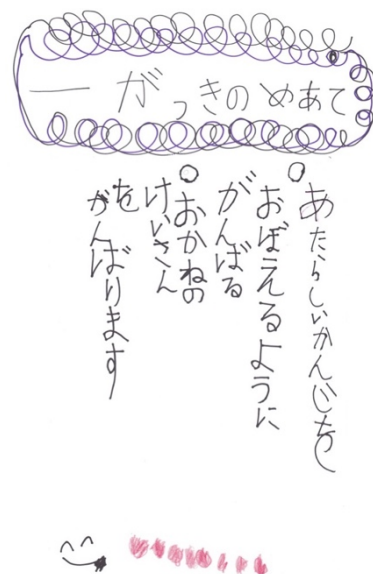 一がっきのめあて
○あたらしいかんじを
おぼえるように
がんばる
○おかねの
けいさん
を
がんばります